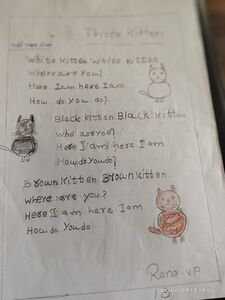 Three Kitten
White Kitten White Kitten
Where are you!
Here I am here I am
How do you do?
Black Kitten Black Kitten
Who are yoe?
Here I am here I am
How do You do?
Brown Kitten Brown Kitten
Where are you?
Here I am here I am
How do You do
Rana VP